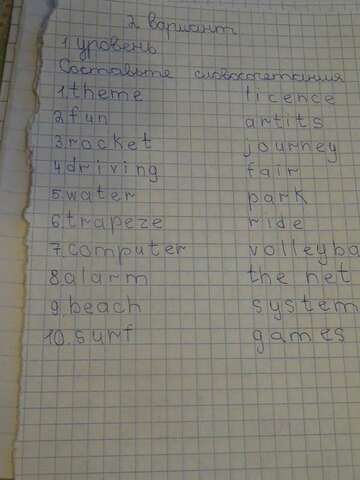 2 вариант
1 уровень
Составьте словосочетания
1.theme licence
2.fun artits
3.rocket journey
4.driving fair
5.water park
6.trapeze ride
7.computer volleyba
8.alarm the net
9.beach system
10.surf games